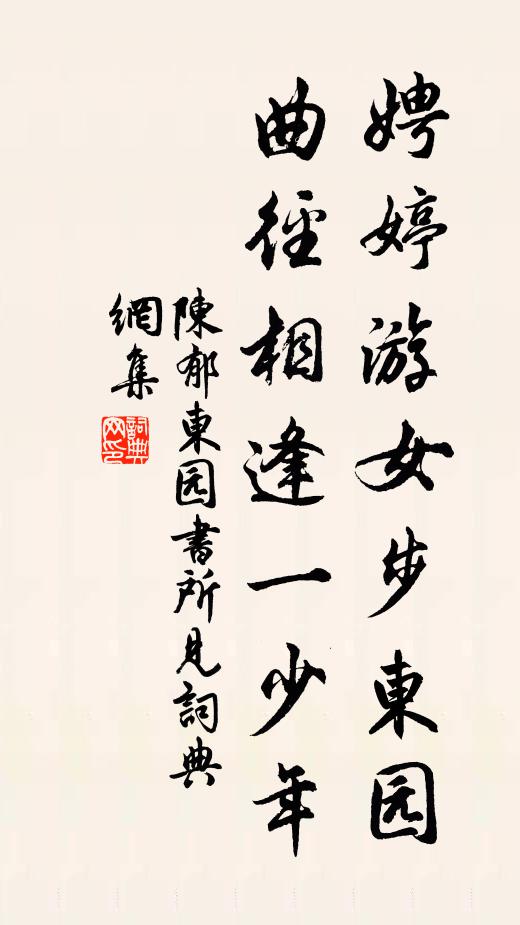 娉婷游女步東园
曲徑相逢一少年
陳郁東园書所見詞典
網集
詞典
网印